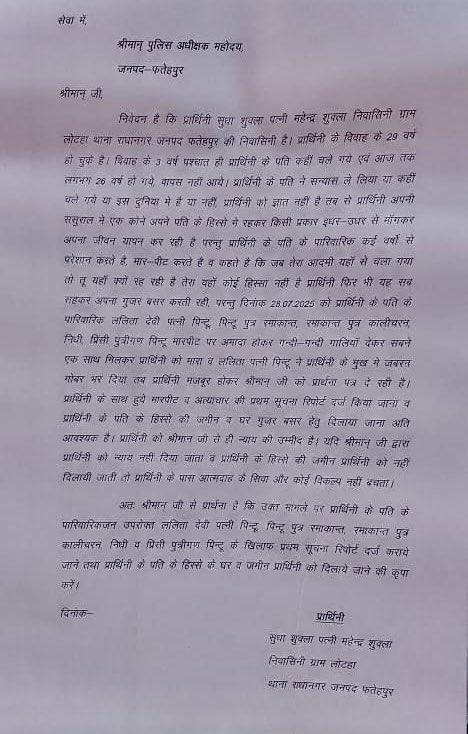 सेवा में,
श्रीमान् पुलिस अधीक्षक महोदय,
जनपद–फतेहपुर
श्रीमान् जी,
निवेदन है कि प्रार्थिनी सुधा शुक्ला पत्नी महेन्द्र शुक्ला निवासिनी ग्राम
लोटहा थाना राधानगर जनपद फतेहपुर की निवासिनी है। प्रार्थिनी के विवाह के 29 वर्ष
हो चुके है। विवाह के 3 वर्ष पश्चात ही प्रार्थिनी के पति कहीं चले गये एवं आज तक
लगभग 26 वर्ष हो गये, वापस नहीं आये। प्रार्थिनी के पति ने सन्यास ले लिया या कहीं
चले गये या इस दुनिया मे है या नहीं, प्रार्थिनी को ज्ञात नहीं है तब से प्रार्थिनी अपनी
ससुराल मे एक कोने अपने पति के हिस्से मे रहकर किसी प्रकार इधर–उधर से माँगकर
अपना जीवन यापन कर रही है परन्तु प्रार्थिनी के पति के पारिवारिक कई वर्षो से
परेशान करते है, मार–पीट करते है व कहते है कि जब तेरा आदमी यहाँ से चला गया
तो तू यहाँ क्यों रह रही है तेरा यहाँ कोई हिस्सा नहीं है प्रार्थिनी फिर भी यह सब
सहकर अपना गुजर बसर करती रही, परन्तु दिनांक 28.07.2025 को प्रार्थिनी के पति के
पारिवारिक ललिता देवी पत्नी पिन्टू, पिन्टू पुत्र रमाकान्त, रमाकान्त पुत्र कालीचरन,
निधी, प्रिंसी पुत्रीगण पिन्टू मारपीट पर अमादा होकर गन्दी–गन्दी गालियाँ देकर सबने
एक साथ मिलकर प्रार्थिनी को मारा व ललिता पत्नी पिन्टू ने प्रार्थिनी के मुख मे जबरन
गोबर भर दिया तब प्रार्थिनी मजबूर होकर श्रीमान् जी को प्रार्थना पत्र दे रही है।
प्रार्थिनी के साथ हुये मारपीट व अत्याचार की प्रथम सूचना रिपोर्ट दर्ज किया जाना व
प्रार्थिनी के पति के हिस्से की जमीन व घर गुजर बसर हेतु दिलाया जाना अति
आवश्यक है। प्रार्थिनी को श्रीमान् जी से ही न्याय की उम्मीद है। यदि श्रीमान् जी द्वारा
प्रार्थिनी को न्याय नहीं दिया जाता व प्रार्थिनी के हिस्से की जमीन प्रार्थिनी को नहीं
दिलायी जाती तो प्रार्थिनी के पास आत्मदाह के सिवा और कोई विकल्प नहीं बचता।
अतः श्रीमान् जी से प्रार्थना है कि उक्त मामले पर प्रार्थिनी के पति के
पारिवारिकजन उपरोक्त ललिता देवी पत्नी पिन्टू, पिन्टू पुत्र रमाकान्त, रमाकान्त पुत्र
कालीचरन, निधी व प्रिंसी पुत्रीगण पिन्टू के खिलाफ प्रथम सूचना रिपोर्ट दर्ज कराये
जाने तथा प्रार्थिनी के पति के हिस्से के घर व जमीन प्रार्थिनी को दिलाये जाने की कृपा
करें।
दिनांक–
प्रार्थिनी
सुधा शुक्ला पत्नी महेन्द्र शुक्ला
निवासिनी ग्राम लोटहा
थाना राधानगर जनपद फतेहपुर